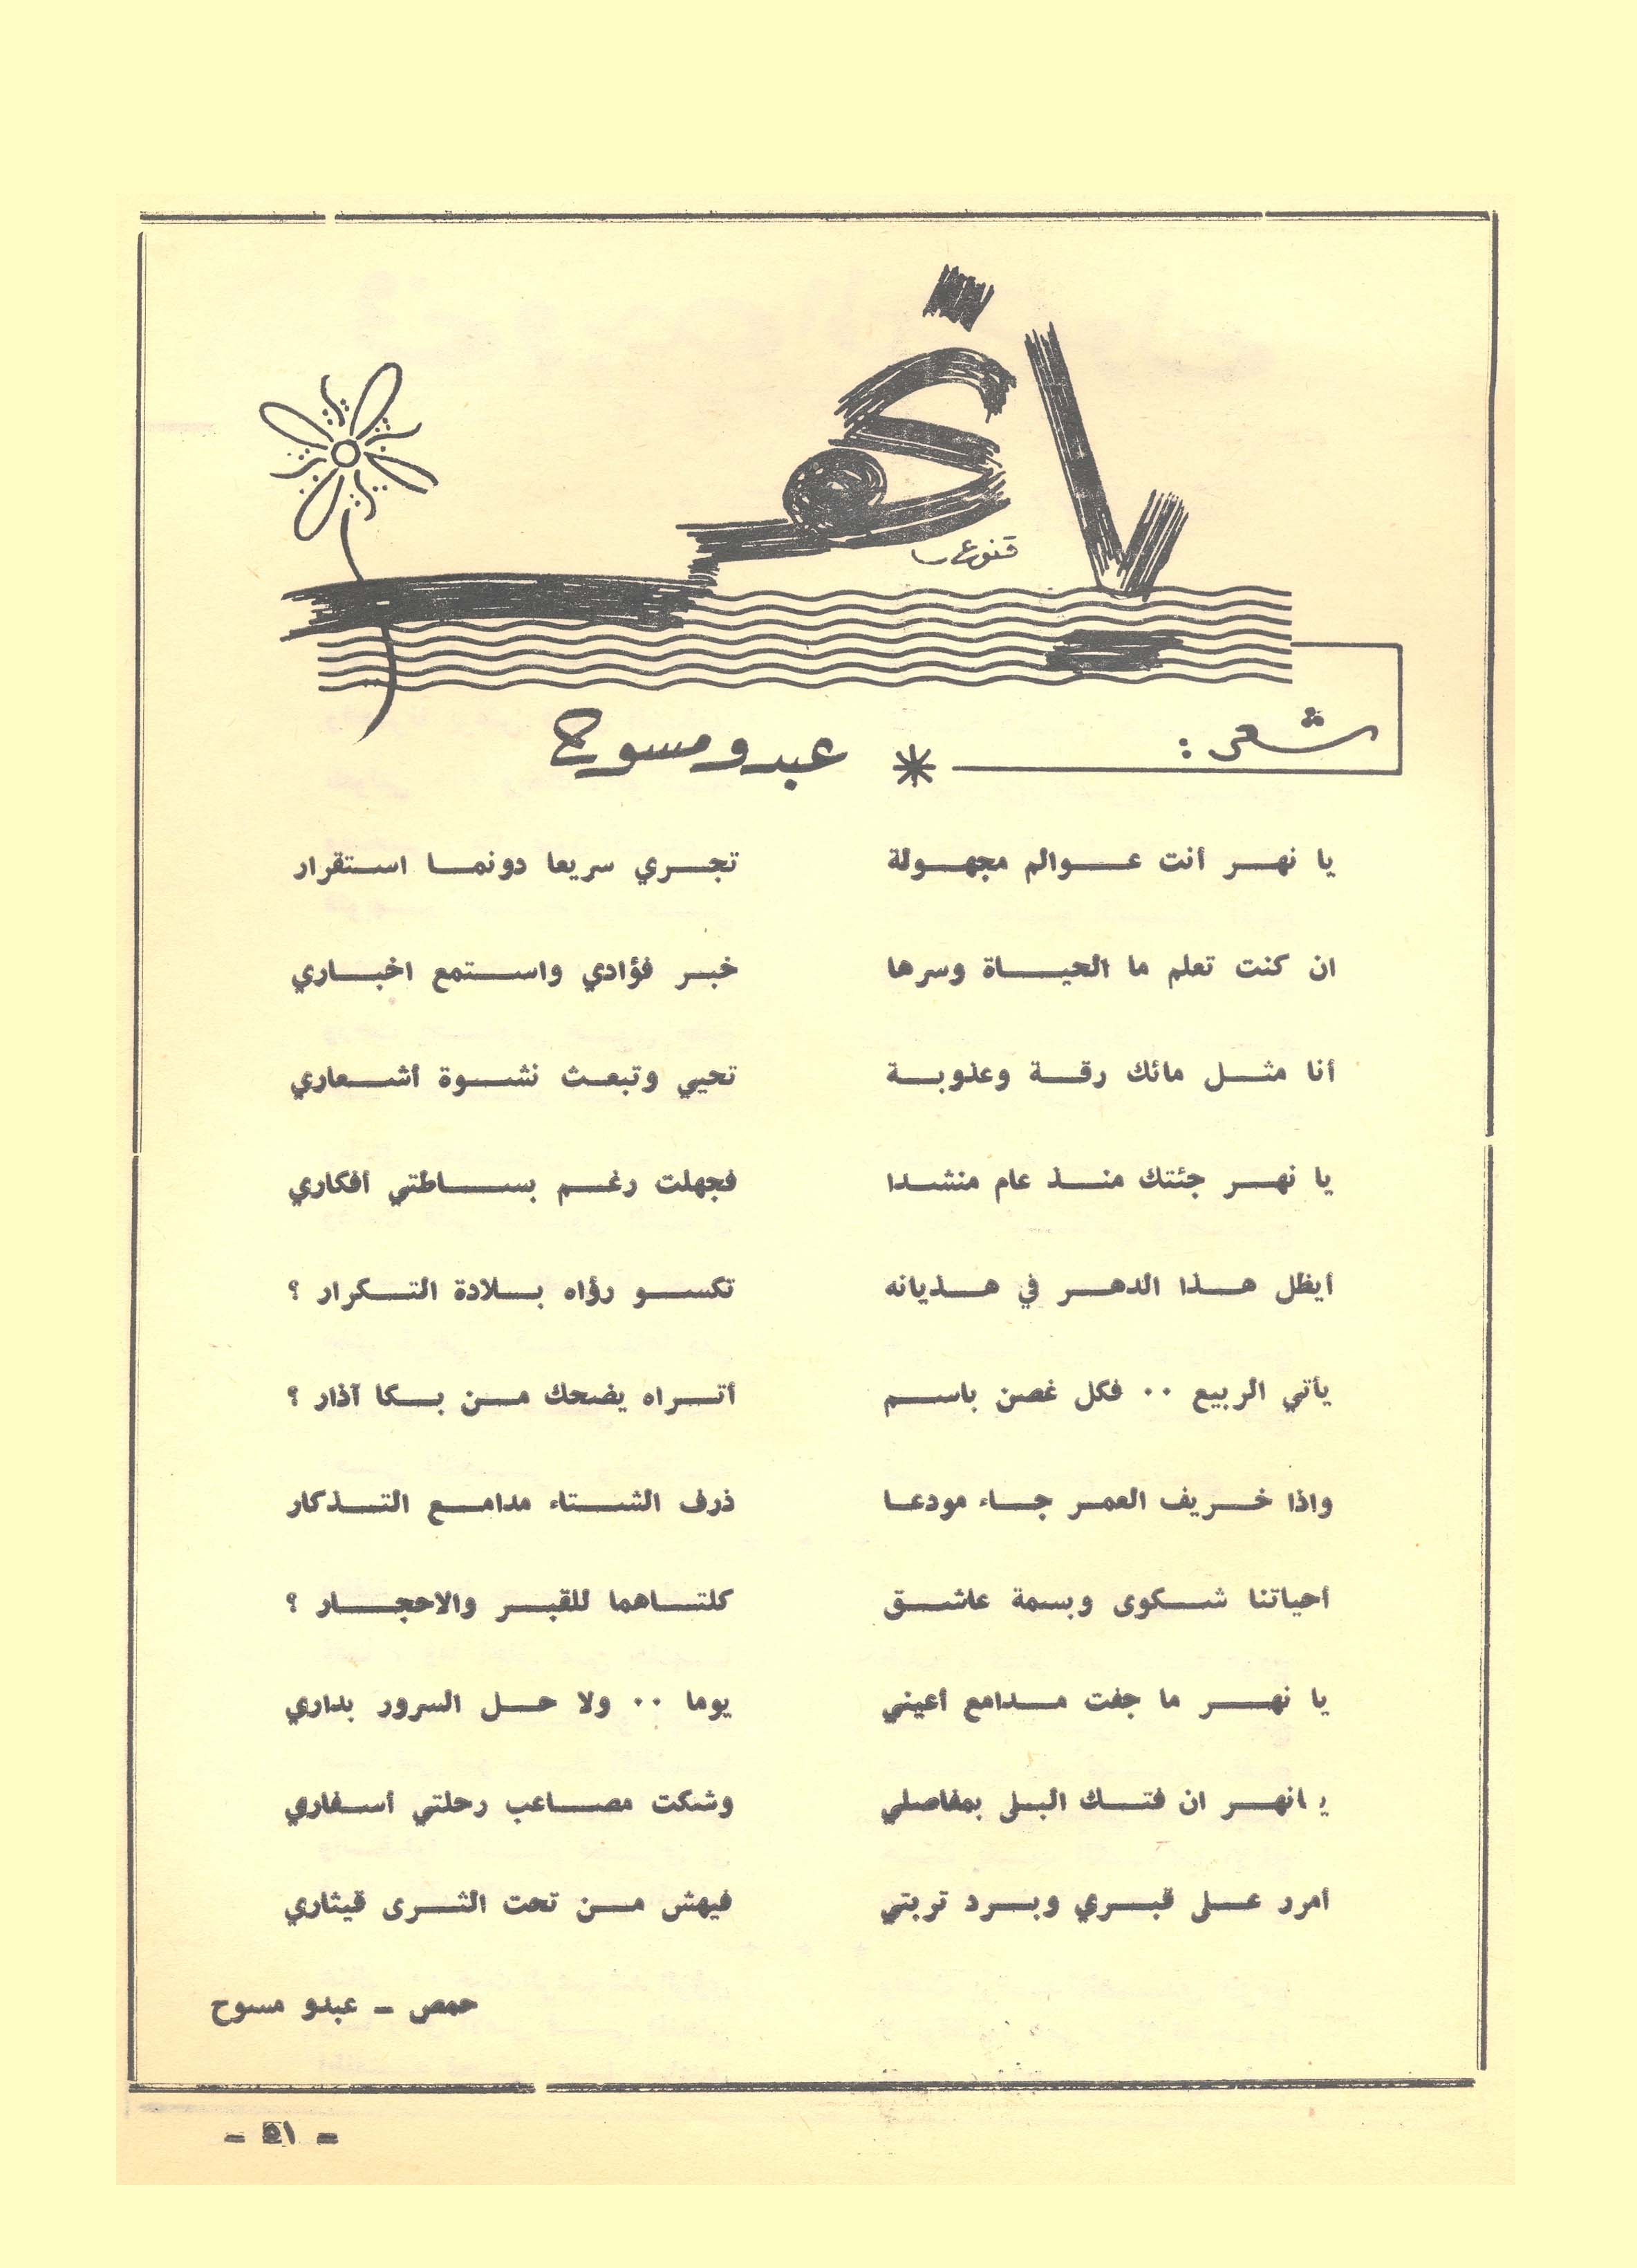 يا نهر
قنوع
شعر :
* عبدو مسوح
يا نهر أنت عوالم مجهولة تجري سريعا دونما استقرار
ان كنت تعلم ما الحياة وسرها خبر فؤادي واستمع اخباري
أنا مثل مائك رقة وعذوبة تحيي وتبعث نشوة أشعاري
يا نهر جئتك منذ عام منشدا فجهلت رغم بساطتي أفكاري
أيظل هذا الدهر في هذيانه تكسو رؤاه بلادة التكرار ؟
يأتي الربيع .. فكل غصن باسم أتراه يضحك من بكا آذار ؟
واذا خريف العمر جاء مودعا ذرف الشتاء مدامع التذكار
أحياتنا شكوى وبسمة عاشق كلتاهما للقبر والاحجار ؟
يا نهر ما جفت مدامع أعيني يوما .. ولا حل السرور بداري
يانهر ان فتك البلى بمفاصلي وشكت مصاعب رحلتي أسفاري
أمرر على قبري وبرد تربتي فيهش من تحت الثرى قيثاري
حمص - عبدو مسوح